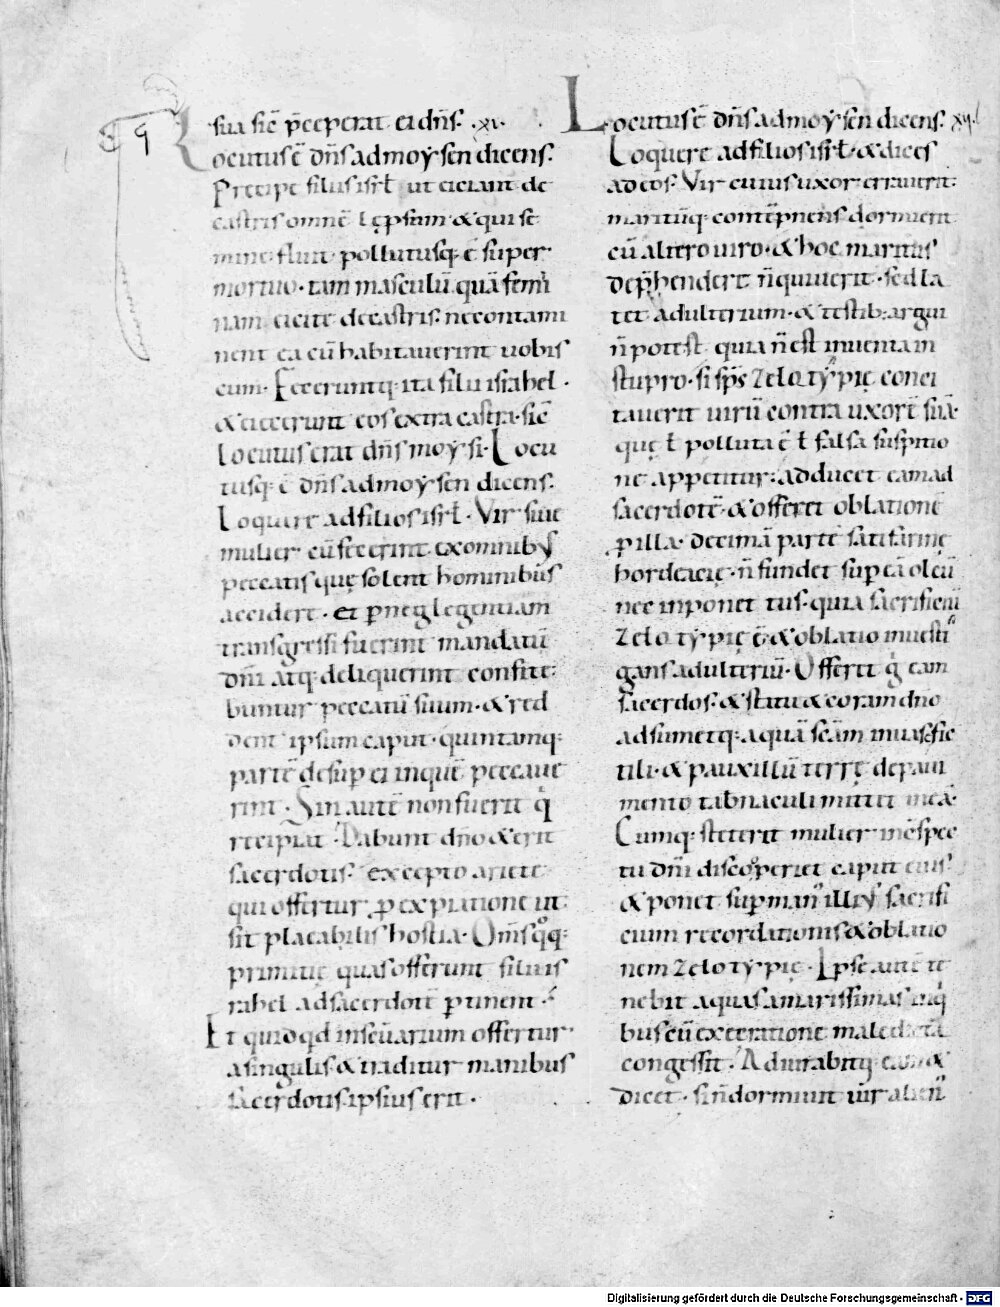 sua sic̄ p̄ceperat ei dn̄s. .xi.
Locutus ē dn̄s ad moẏsen dicens.
Precipe filiis isrł ut eiciant de
castris omnē lęp̄sum & qui se
mine fluit pollutusq; ē super
mortuo. tam masculū quā femi
nam eicite de castris. ne contami
nent ea cū habitauerint uobis
cum. Feceruntq; ita filii israhel.
& eiecerunt eos extra castra. sic̄
locutus erat dn̄s moẏsi. Locu
tusq; ē dn̄s ad moẏsen dicens.
Loquere ad filios isrł. Vir siue
mulier cū fecerint ex omnibus
peccatis quę solent hominibus
accidere. et p neglegentiam
transgressi fuerint mandatū
dn̄i atq; deliquerint confite
buntur peccatū suum. & red
dent ipsum caput. quintamq;
partē desup ei in quē peccaue
rint. Sin autē non fuerit q
recipiat. Dabunt dn̄o & erit
sacerdotis. excepto ariete
qui offertur p expiatione ut
sit placabilis hostia. Om̄s qoq;
primitię quas offerunt filii is
rahel ad sacerdotē ptinent.
Et quidqd in scūarium offertur
a singulis & traditur manibus
sacerdotis ipsius erit.
Locutus ē dn̄s ad moẏsen dicens. xii.
Loquere ad filios isrł. & dices
ad eos. Vir cuius uxor errauerit.
maritūq; contēpnens dormierit
cū altero uiro. & hoc maritus
dep̄hendere n̄ quiuerit. sed la
tet adulterium. & testib; argui
n̄ potest. quia n̄ est inuenta in
stupro. si sps̄ zelotẏpię conci
tauerit uirū contra uxorē suā.
quę ł polluta ē ł falsa suspitio
ne appetitur. adducet eam ad
sacerdotē. & offeret oblationē
p illa. decimā partē sati farinę
hordeacię. n̄ fundet sup eā oleū
nec inponet tus. quia sacrificiū
zelotẏpię ē. & oblatio inuesti
gans adulteriū. Offeret g eam
sacerdos. & statu& coram dn̄o
adsumetq; aquā scām in uase fic
tili. & pauxillū terrę de paui
mento tabnaculi mittet in eā.
Cumq; steterit mulier in c̄spec
tu dn̄i discoperiet caput eius
& ponet sup man illius sacrifi
cium recordationis & oblatio
nem zelotẏpię. Ipse autē te
nebit aquas amarissimas in q
bus cū execratione maledicta
congessit. Adiurabitq; eam &
dicet. si n̄ dormiuit uir alien
Digitalisierung gefördert durch die Deutsche Forschungsgemeinschaft - DFG